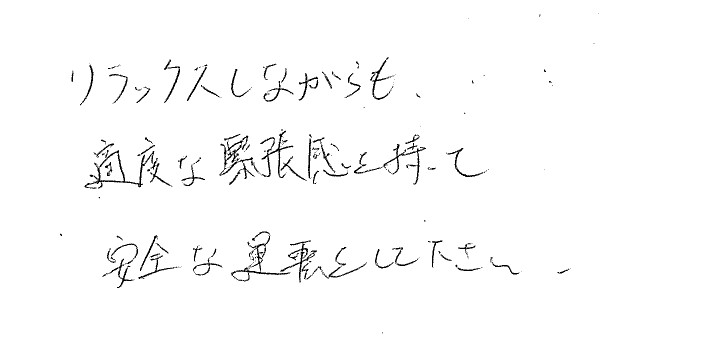 リラックスしながらも、
適度な緊張感を持って
安全な運転をして下さい。